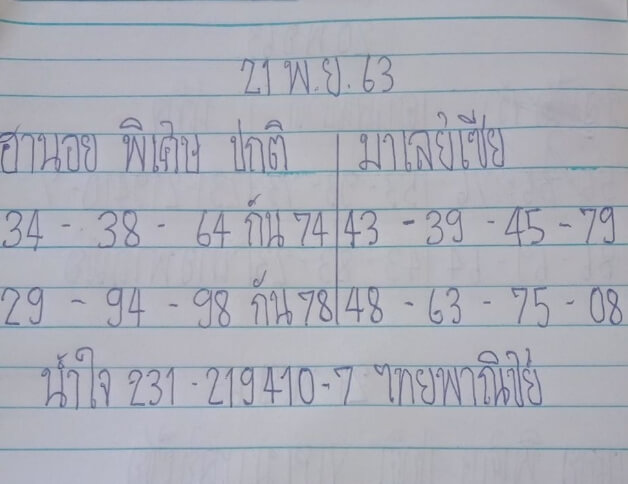 21 พ.ย. 63
ฮานอย พิเศษ ปกติ มาเลย์เซีย
34 - 38 - 64 กัน 74 43 - 39 - 45 - 79
29 - 94 - 98 กัน 78 48 - 63 - 75 - 08
น้ำใจ 231-219410-7 ไทยพาณิชย์